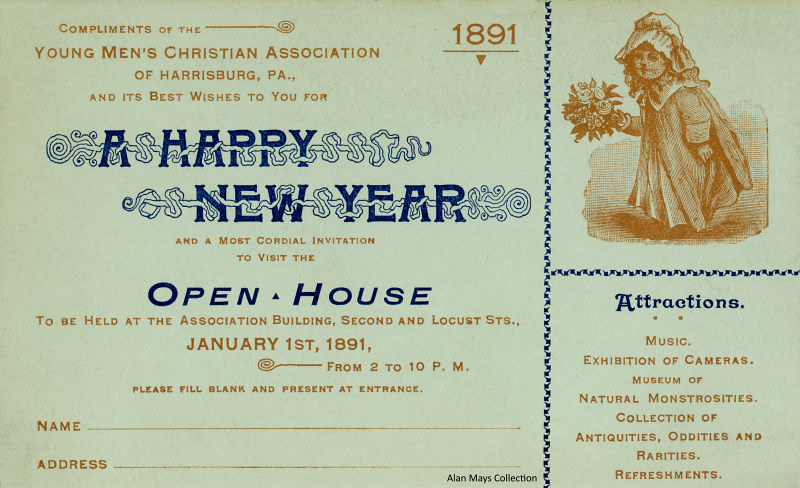 Compliments of the
Young Men's Christian Association
of Harrisburg, Pa.,
and its Best Wishes to You for
1891
A HAPPY
NEW YEAR
and a Most Cordial Invitation
to Visit the
Open House
To be Held at the Association Building, Second and Locust Sts.,
JANUARY 1st, 1891,
From 2 to 10 P. M.
please fill blank and present at entrance.
Name
Address
Attractions.
Music.
Exhibition of Cameras.
Museum of
Natural Monstrosities.
Collection of
Antiquities, Oddities and
Rarities.
Refreshments.
Alan Mays Collection